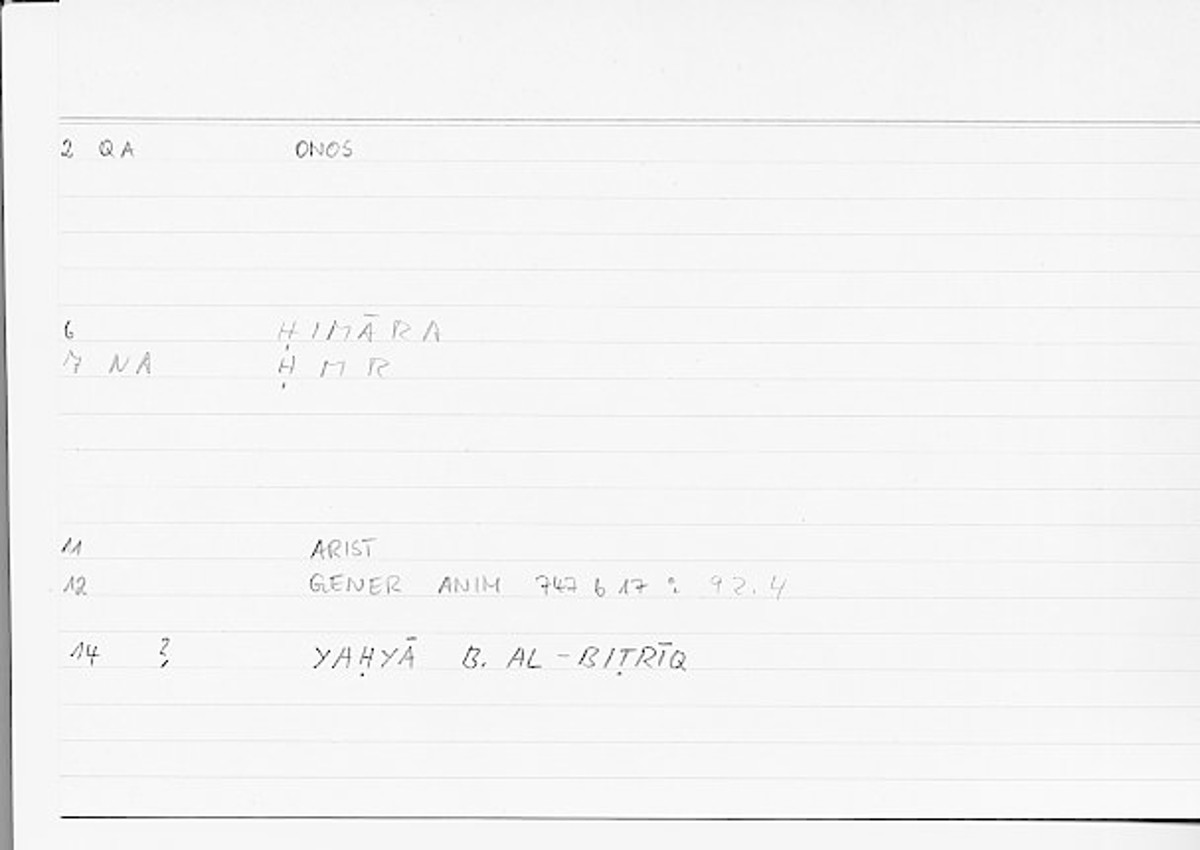 2 QA ONOS
6 ḤIMĀRA
7 NA ḤMR
11 ARIST
12 GENER ANIM 747 b 17 : 92.4
14 ? YAḤYĀ B. AL-BIṬRĪQ